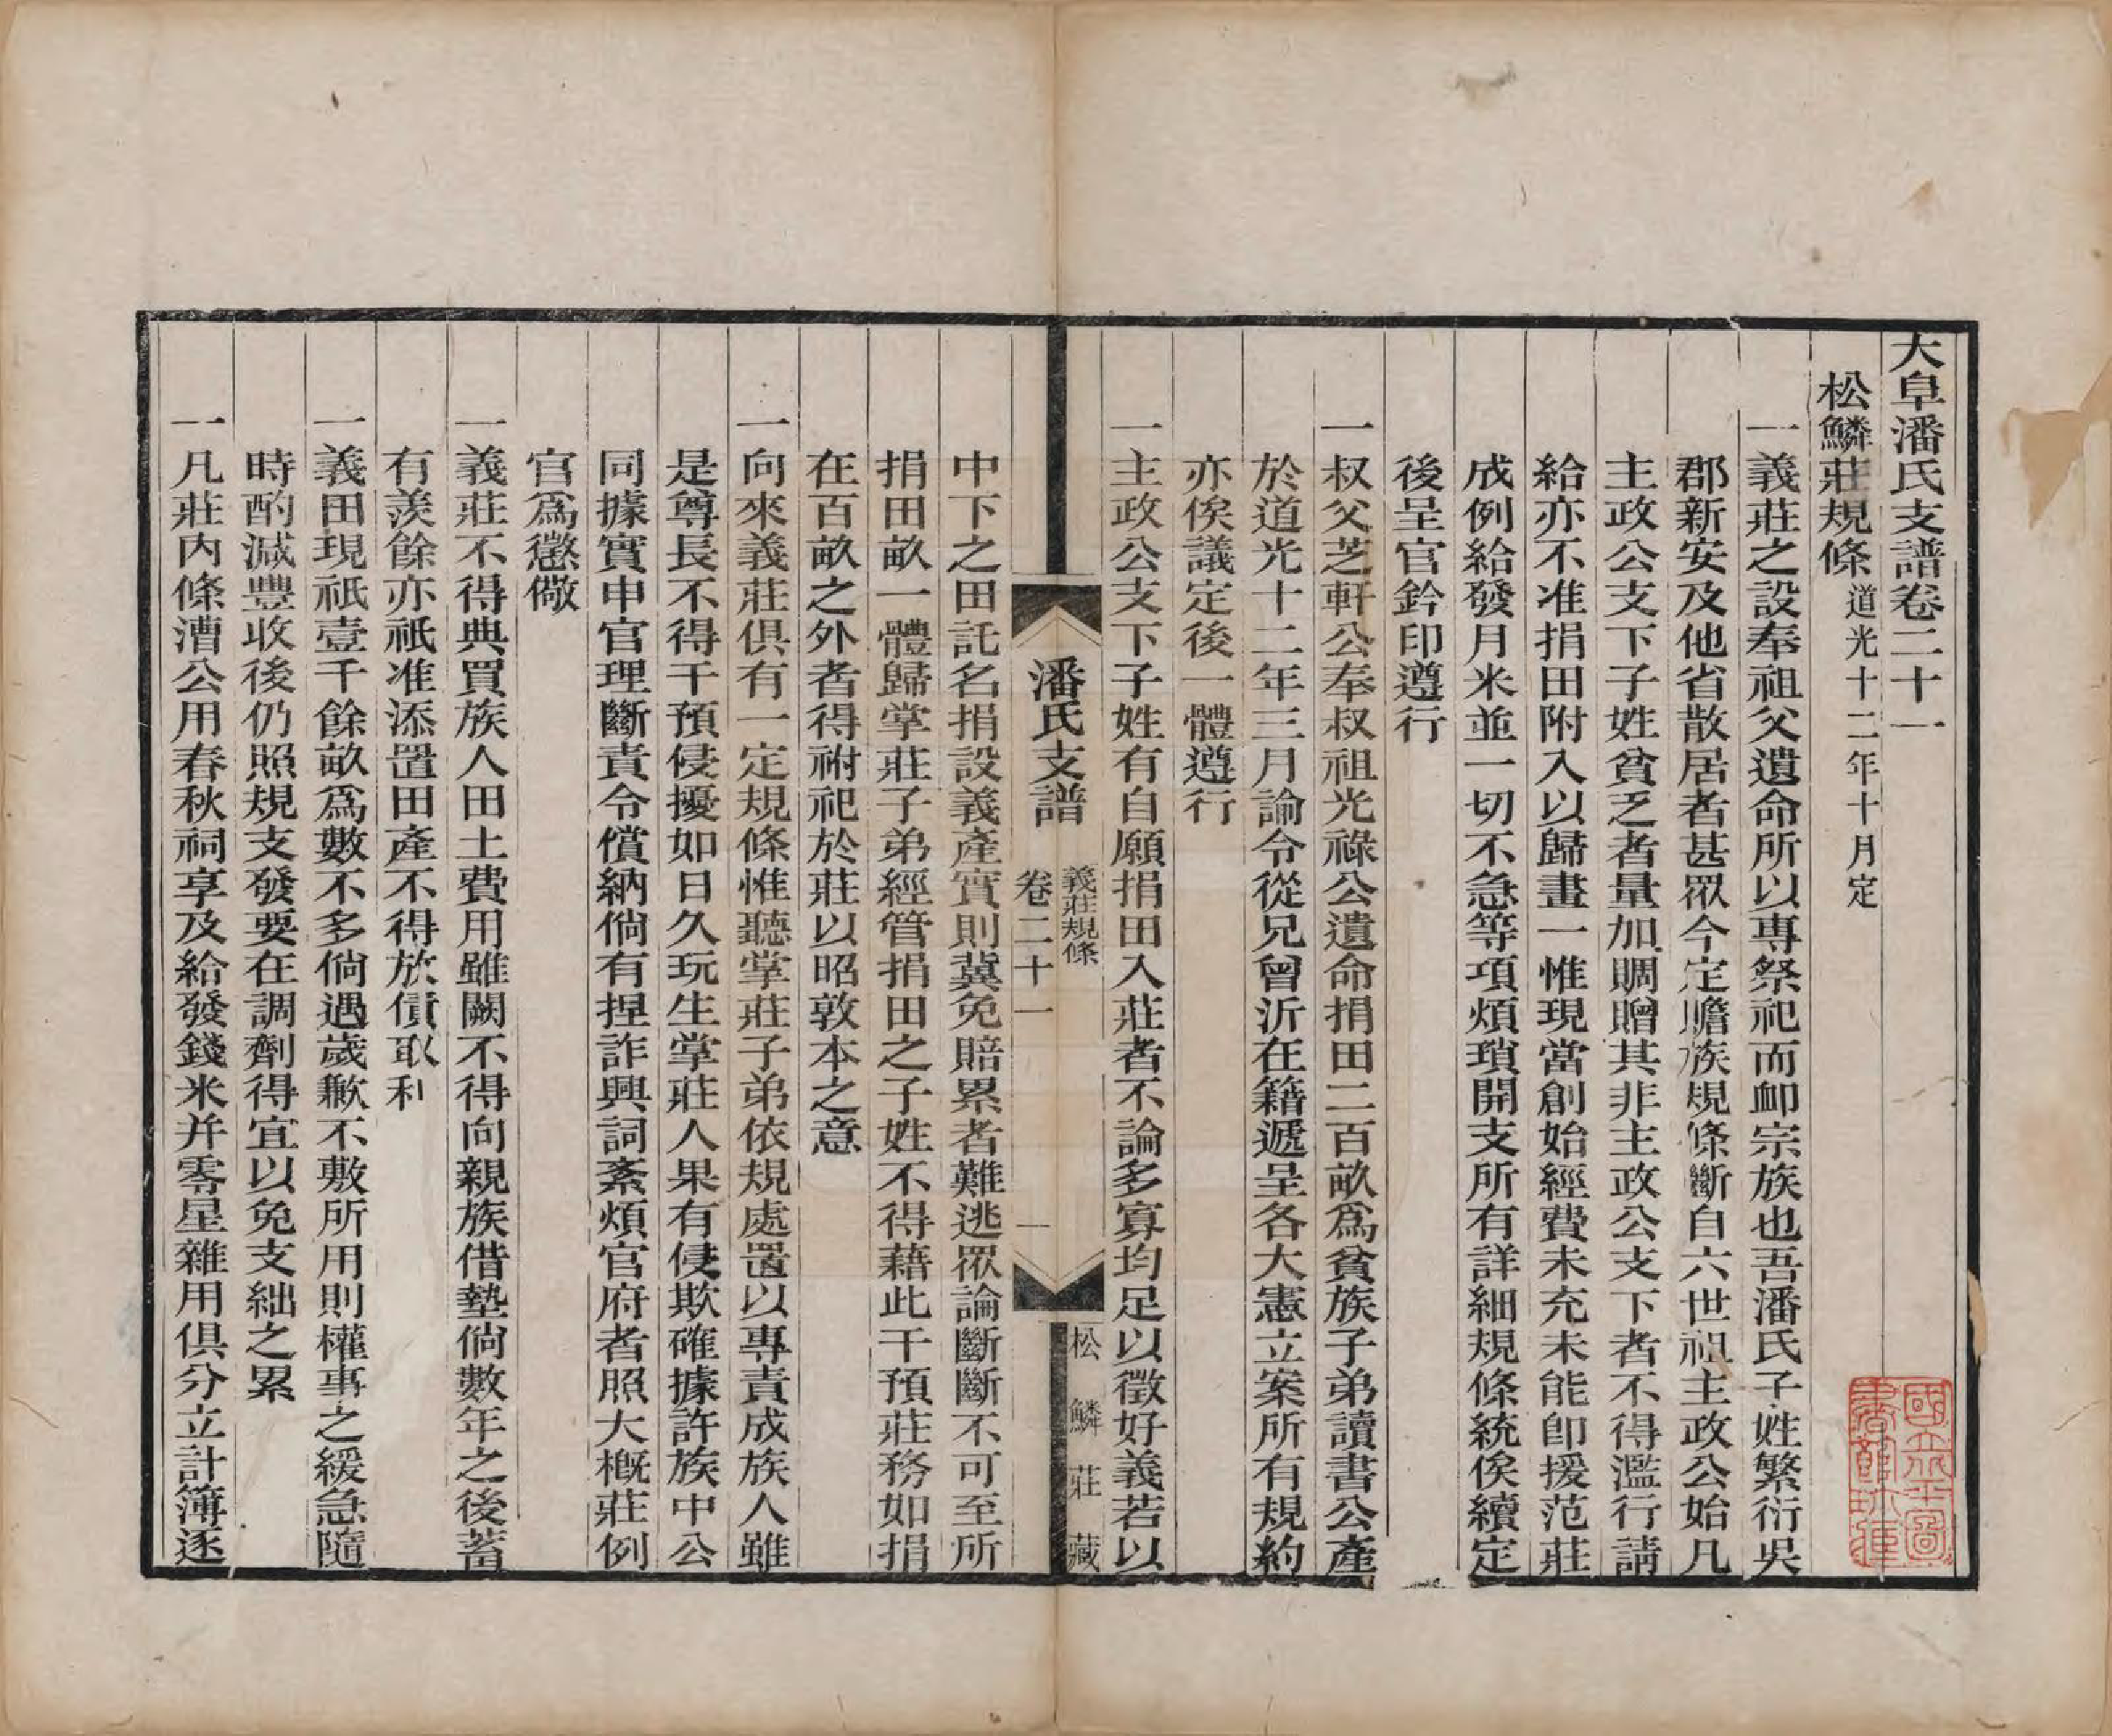 大阜潘氏支譜卷二十一
松鱗莊規條道光十二年十月定
一義莊之設奉祖父遺命所以專祭祀而卹宗族也吾潘氏子姓繁衍吳
郡新安及他省散居者甚眾今定贍族規條斷自六世祖主政公始凡
主政公支下子姓貧乏者量加賙贈其非主政公支下者不得濫行請
給亦不准捐田附入以歸畫一惟現當創始經費未充未能卽援范莊
成例給發月米並一切不急等項煩瑣開支所有詳細規條統俟續定
後呈官鈐印遵行
一叔父芝軒公奉叔祖光祿公遺命捐田二百畝爲貧族子弟讀書公產
於道光十二年三月諭令從兄曾沂在籍遞呈各大憲立案所有規約
亦俟議定後一體遵行
一主政公支下子姓有自願捐田入莊者不論多寡均足以徵好義若以
潘氏支譜
義莊規條
卷二十一
一
松鱗莊藏
中下之田託名捐設義產實則冀免賠累者難逃眾論斷斷不可至所
捐田畝一體歸掌莊子弟經管捐田之子姓不得藉此干預莊務如捐
在百畝之外者得祔祀於莊以昭敦本之意
一向來義莊俱有一定規條惟聽掌莊子弟依規處置以專責成族人雖
是尊長不得干預侵擾如日久玩生掌莊人果有侵欺確據許族中公
同據實申官理斷責令償納倘有捏詐興詞紊煩官府者照大概莊例
官爲懲儆
一義莊不得典買族人田土費用雖闕不得向親族借墊倘數年之後蓄
有羨餘亦祇准添置田產不得放債取利
一義田現祇壹千餘畝爲數不多倘遇歲歉不敷所用則權事之緩急隨
時酌減豐收後仍照規支發要在調劑得宜以免支絀之累
一凡莊內條漕公用春秋祠享及給發錢米并零星雜用俱分立計簿逐